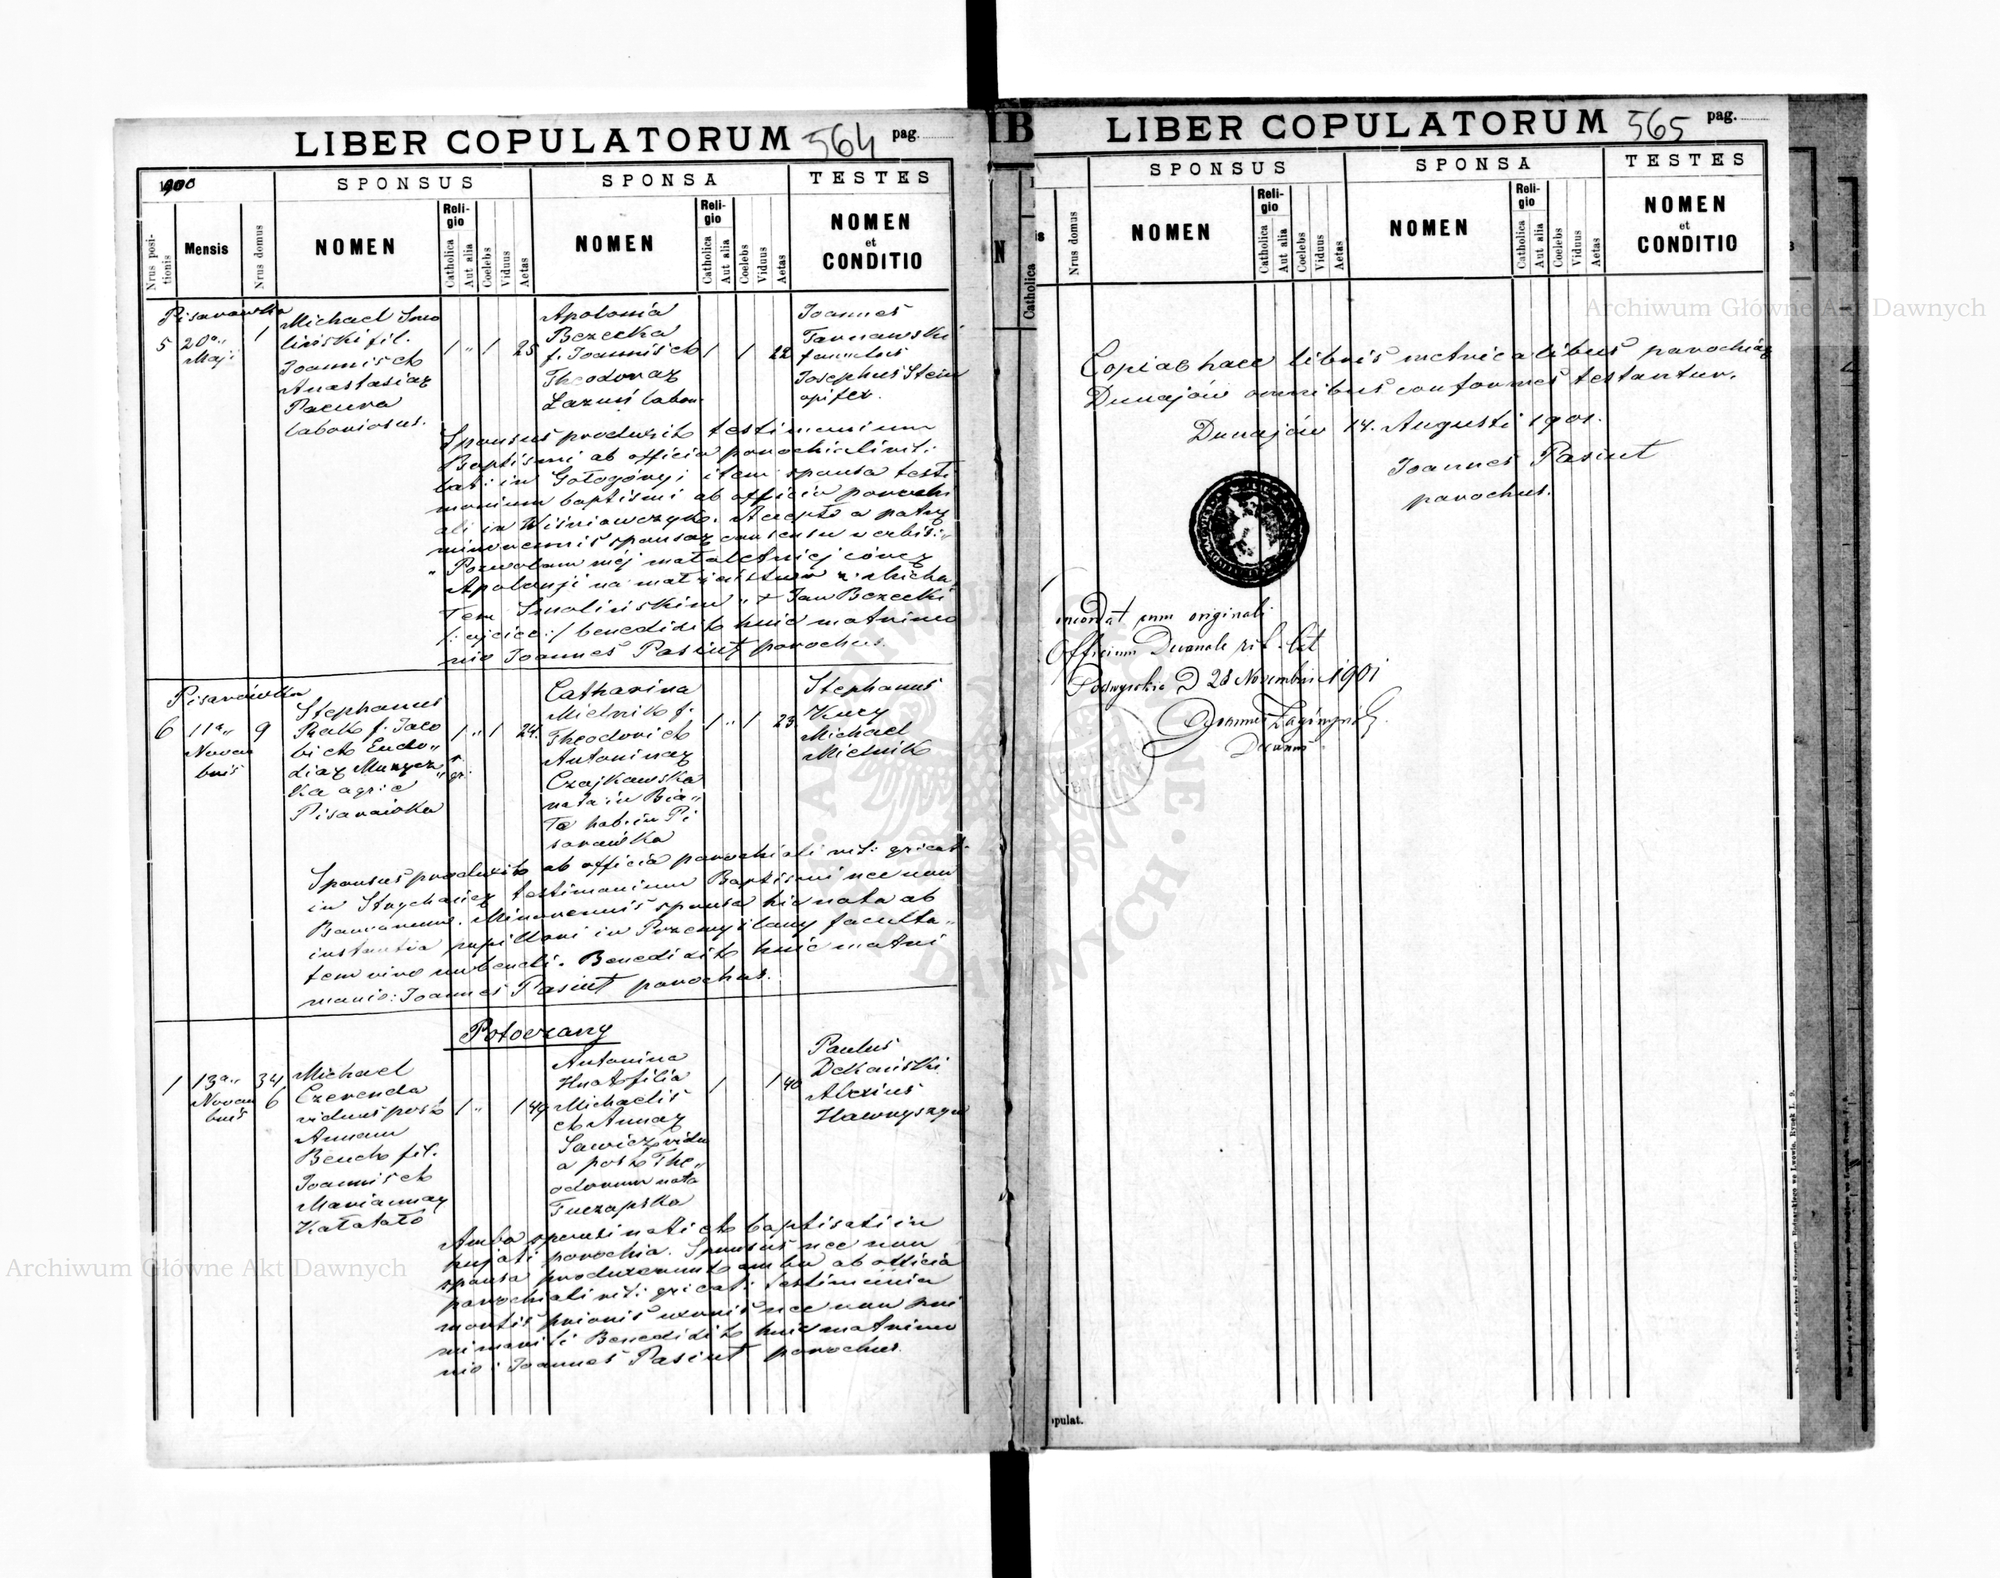 LIBER COPULATORUM 564 pag.
1900
SPONSUS
SPONSA
TESTES
Nrus positionis
Mensis
Nrus domus
NOMEN
Religio
Catholica
Aut alia
Coelebs
Viduus
Aetas
NOMEN
Religio
Catholica
Aut alia
Coelebs
Viduus
Aetas
NOMEN
et
CONDITIO
Pisarówka
5 20a„ Maji
1
Michael Smo
liński fil.
Joannis et
Anastasiae
Pacura
laboriosus.
1 „ 1 25
Apolonia
Bezecka
f. Joannis et
Theodorae
Łazuń labor.
1 1 22
Joannes
Tarnawski
famulus
Josephus Stein
opifex.
Sponsus produxit testimonium
Baptismi ab officio parochiali rit:
lat: in Gołogóry; item sponsa testi
monium baptismi ab officio parochi
ali in Wiśniowczyk. Accepto a patre
minorennis sponsae consensu verbis:
„Pozwalam mej małoletniej córce
Apolonji na małżeństwo z Micha
łem Smolińskim" + Jan Bezecki
/:ojciec:/ benedixit huic matrimo
nio Joannes Pasiut parochus.
Pisarówka
6 11a„ Novem
bris
9
Stephanus
f. Jaco
bi et Eudo„
kiae
ka agric
Pisarówka
1 „ 1 24
r.
gr.
Catharina
Mielnik f.
Theodori et
Antoninae
Czajkowska
nata in Bia„
ła hab. in Pi
sarówka
1 „ 1 23
Stephanus
Kucy
Michael
Mielnik
Sponsus produxit ab officio parochiali rit: gr: cat:
in testimonium Baptismi nec non
Bannorum. Minorennis sponsa hic nata ab
instantia pupillari in Przemyślany faculta„
tem viro nubendi. Benedixit huic matri
monio: Joannes Pasiut parochus.
Potoczany
1 13a„ Novem
bris
34
6
Michael
Czerenda
viduus post
Annam
Bench fil.
Joannis et
Mariannae
Kałatało
1 „ 1 49
Antonina
Hnat filia
Michaelis
et Annae
Sawicz vidu
a post The„
odorum nata
Tuczapska
1 1 40
Paulus
Alexius
Hawryszyn
Ambo sponsi nati et baptisati in
hujati parochia. Sponsus nec non
sponsa produxerunt ambo ab officio
parochiali rit: gr: cat: testimonia
mortis prioris uxoris nec non pri
mi mariti Benedixit huic matrimo
nio: Joannes Pasiut parochus.
LIBER COPULATORUM 565 pag.
SPONSUS
SPONSA
TESTES
Nrus domus
NOMEN
Religio
Catholica
Aut alia
Coelebs
Viduus
Aetas
NOMEN
Religio
Catholica
Aut alia
Coelebs
Viduus
Aetas
NOMEN
et
CONDITIO
Copiae haec libris metricalibus parochiae
Dunajów omnibus conformes testantur.
Dunajów 14. Augusti 1901.
Joannes Pasiut
parochus.
cum originali
Officium Decanale rit. lat
D 28 Novembris 1901
Joannes
Decanus
opulat.
Archiwum Główne Akt Dawnych
Archiwum Główne Akt Dawnych